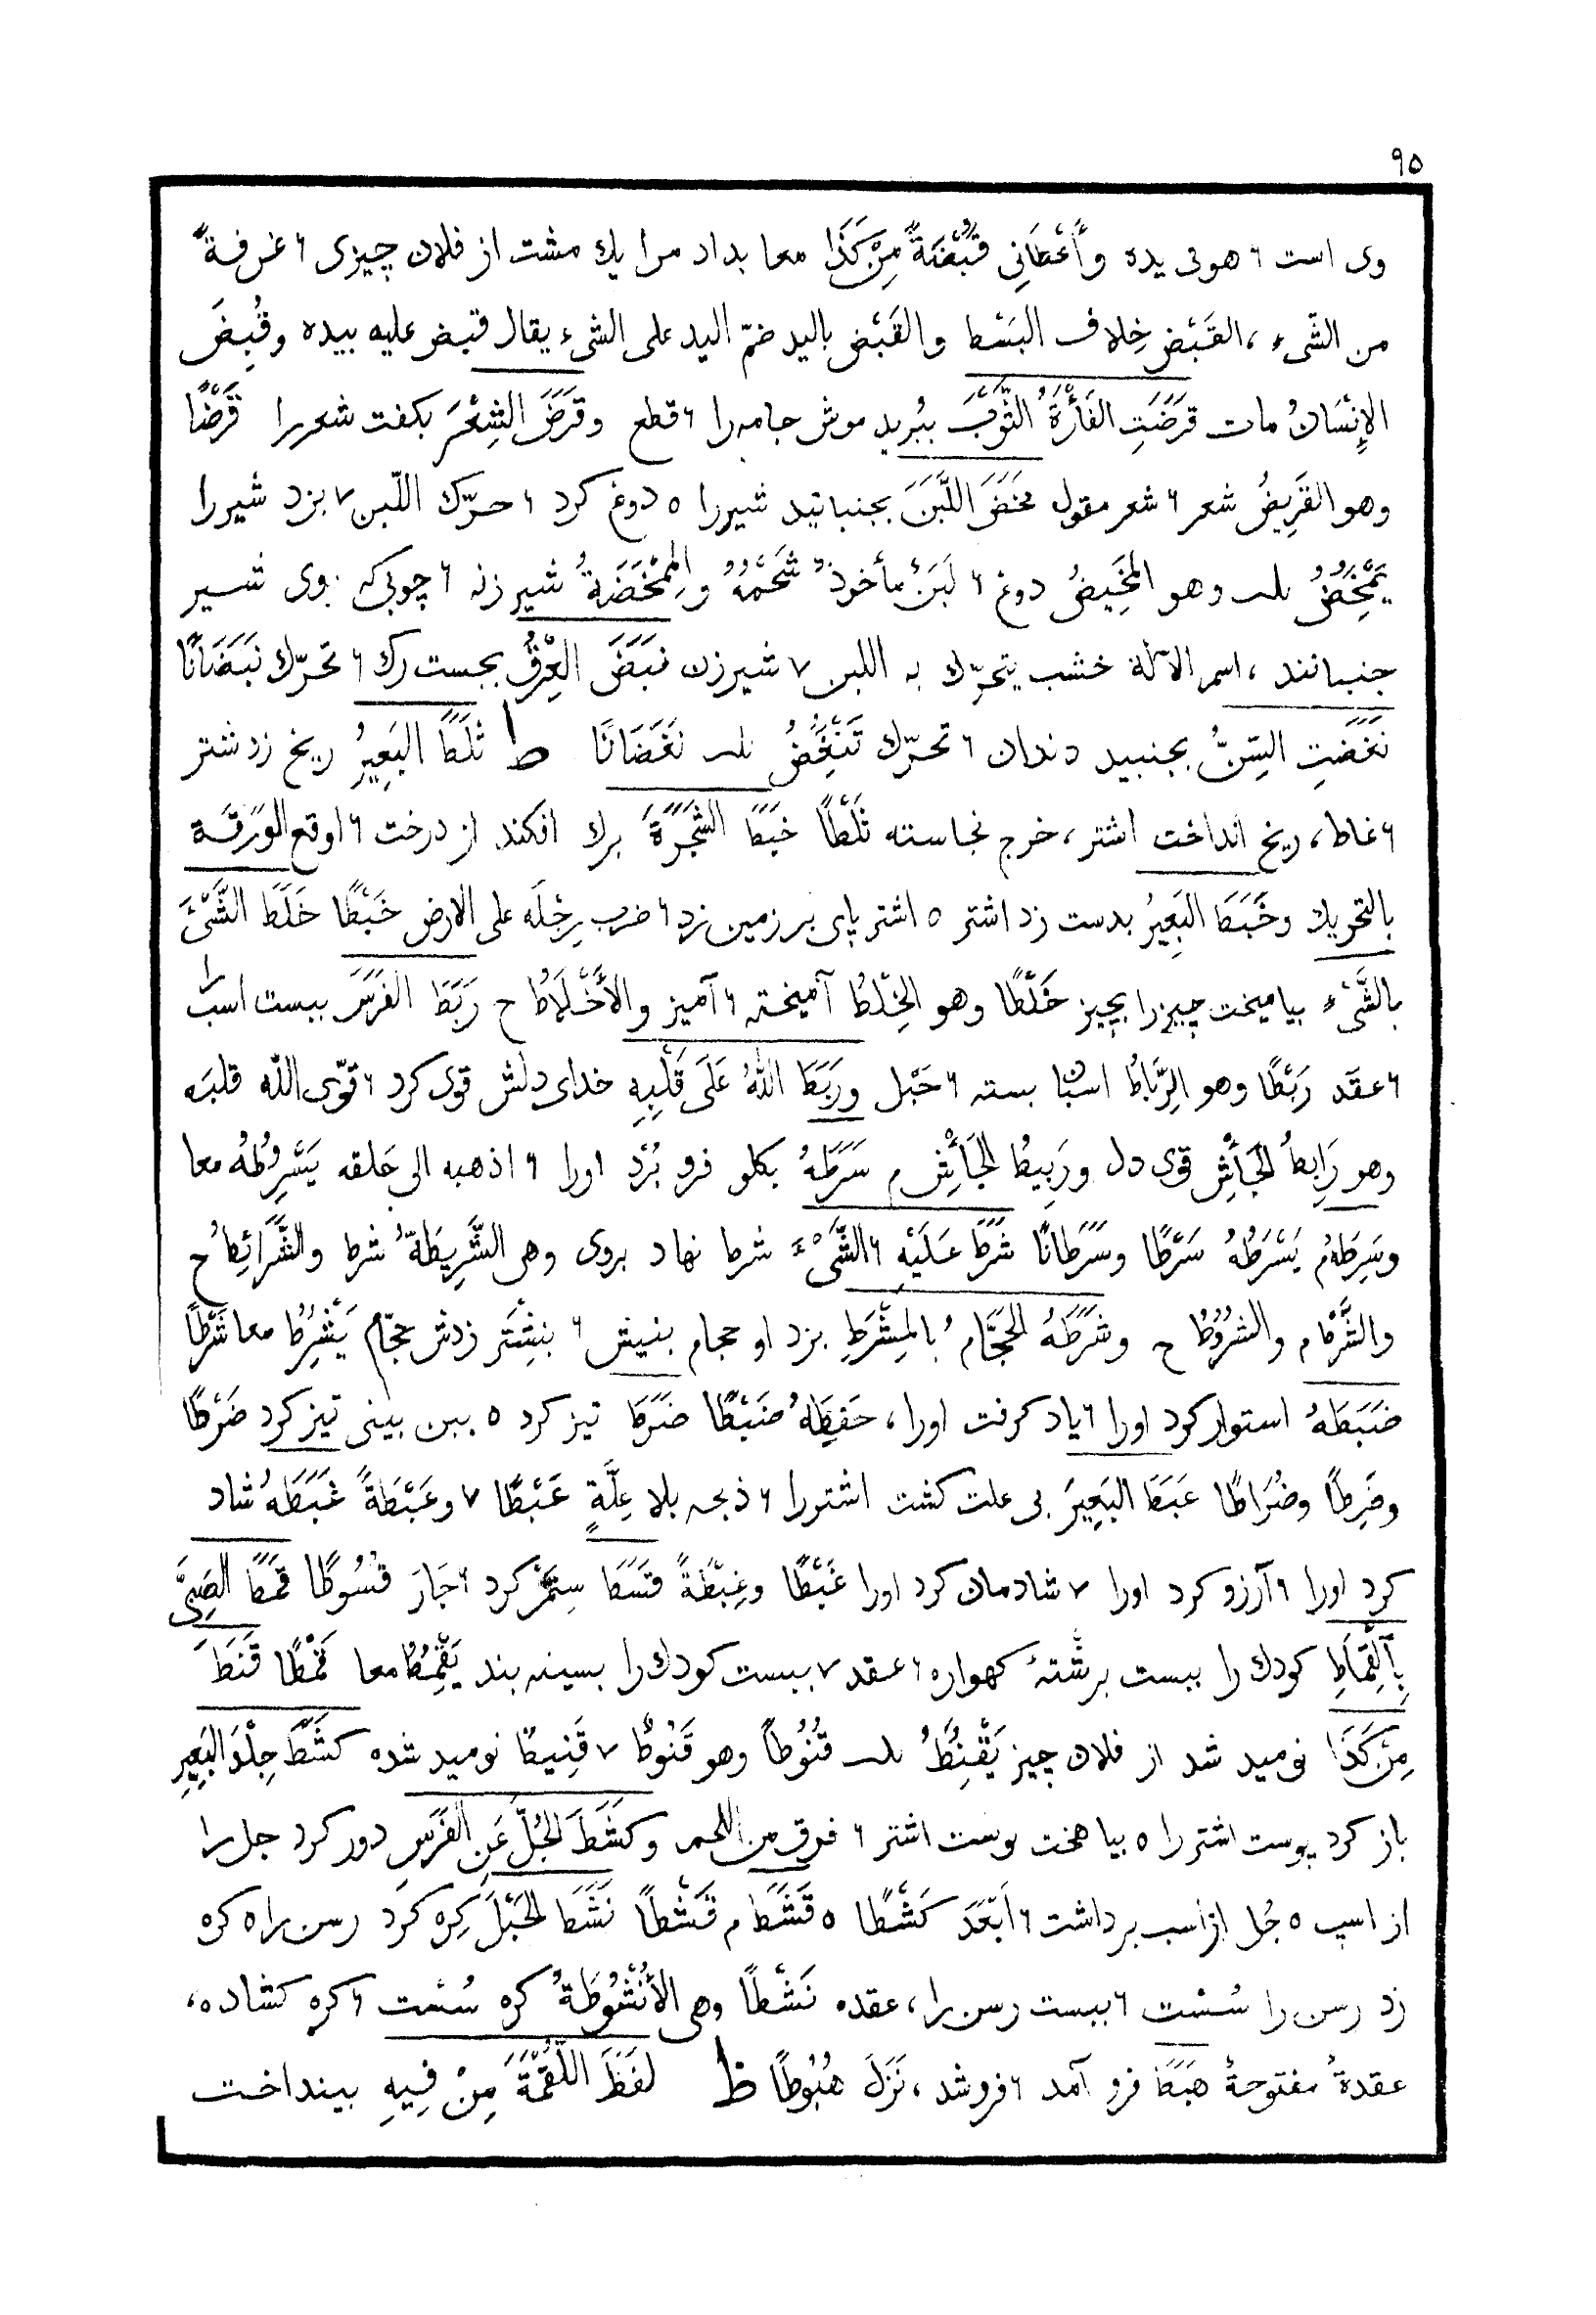 ٩٥
وى است ٦ هو فى يده وأَعْطَانِى قَُبْضَةً مِنْ كَذَا معا بداد مرا يك مشت از فلان چيزى ٦ غرفةً
من الشّىء، القَبْض خِلاف البَسْط والقَبْض باليد ضمّ اليد على الشىء يقال قبض عليه بيده وقُبِضَ
الإِنْسَانُ مات قَرَضَتِ الفَأْرَةُ الثَّوْبَ ببُريد موش جامه را ٦ قطع وقَرَضَ الشِعْرَ بكفت شعر را قَرْضًا
وهو القَرِيضُ شعر ٦ شعر مقول مَخَضَ اللَّبَنَ بجنبانيد شير را ٥ دوغ كرد ٦ حرّك اللّبن ٧ بزد شير را
يَمْخَِضُ وهو المَخِيضُ دوغ ٦ لَبَنٌ مأخوذٌ شَحْمُهُ والمِمْخَضَةُ شير زنه ٦ چوبى كه بوى شير
جنبانند، اسم الآلة خشب يتحرّك به اللبن ٧ شير زن نَبَضَ العِرْقُ بجست رك ٦ تحرّك نَبَضَانًا
نَغَضَتِ السِّنُّ بجنبيد دندان ٦ تحرّك تَنْغُِضُ نَغَضَانًا ط ثَلَطَ البَعِيرُ ريخ زد شتر
٦ غاط، ريخ انداخت اشتر، خرج نجاسته ثَلْطًا خَبَطَ الشَّجَرَةَ برك افكند از درخت ٦ اوقع الوَرَقَة
بالتحريك وخَبَطَ البَعِيرُ بدست زد اشتر ٥ اشتر پاى بر زمين زد ٦ ضرب رِجْلَه على الارض خَبْطًا خَلَطَ الشَّىْءَ
بالشَّىْءِ بياميخت چيز را بچيز خَلْطًا وهو الخِلْطُ آميخته ٦ آميز والأَخْلَاطُ ح رَبَطَ الفَرَسَ ببست اسب را
٦ عقَد رَبْطًا وهو الرِّبَاطُ بسته ٦ حَبْل ورَبَطَ اللهُ عَلَى قَلْبِهِ خداى دلش قوى كرد ٦ قوّى الله قلبَه
وهو رَابِطُ الجَأْشِ قوى دل ورَبِيطُ الجَأْشِ م سَرَطَهُ بكلو فرو بُرْد اورا ٦ اذهبه الى حَلقه يَسْرُِطُهُ معا
وسَرِطَهُ م يَسْرَطُهُ سَرْطًا وسَرَطَانًا شَرَطَ عَلَيْهِ ٦ الشَّىْءَ شرط نهاد بروى وهى الشَّرِيطَةُ شرط والشَّرَائِطُ ح
والشَّرْطُ م والشُرُوطُ ح وشَرَطَهُ الحَجَّامُ بالمِشْرَطِ بزد او حجام بنيش ٦ بنِشْتَر زدش حجّام يَشْرُِطُ معا شَرْطًا
ضَبَطَهُ استوار كرد اورا ٦ ياد كرفت اورا، حَفِظَهُ ضَبْطًا ضَرَطَ تيز كرد ٥ ببن بينى تيز كرد ضَرْطًا
وضَرِطًا وضُرَاطًا عَبَطَ البَعِيرَ بى علت كشت اشتر را ٦ ذبحه بلا عِلَّةٍ عَبْطًا ٧ وعَبْطَةً غَبَطَهُ شاد
كرد اورا ٩ آرزو كرد اورا ٧ شادمان كرد اورا غَبْطًا وغِبْطَةً قَسَطَ سِتَمْ كرد ٦ جَارَ قُسُوطًا قَمَطَ الصَبِىَّ
بِالقِمَاطِ كودك را ببست برشتهٔ كهواره ٦ عقد ٧ ببست كودك را بسينه بند يَقْمُِطُ معا قَمْطًا قَنَطَ
مِنْ كَذَا نوميد شد از فلان چيز يَقْنُِطُ قُنُوطًا وهو قَنُوطٌ ٧ قَنِيطٌ نوميد شده كَشَطَ جِلْدَ البَعِيرِ
باز كرد پوست اشتر را ٥ بياهخت پوست اشتر ٦ فوق من اللحم وكَشَطَ الجُلَّ عَنِ الفَرَسِ دور كرد جل را
از اسپ ٥ جُل از اسب برداشت ٦ اَبْعَدَ كَشْطًا ٥ قَشَطَ م قَشْطًا نَشَطَ الحَبْلَ كِره كرد رسن را ٥ كره
زد رسن را سُسْت ٦ ببست رسن را، عقده نَشْطًا وهى الأُنْشُوطَةُ كره سُسْت ٦ كره كشاده،
عقدةٌ مفتوحةٌ هَبَطَ فرو آمد ٦ فرو شد، نَزَلَ هُبُوطًا ظ لَفَظَ اللُّقْمَةَ مِنْ فِيهِ بينداخت